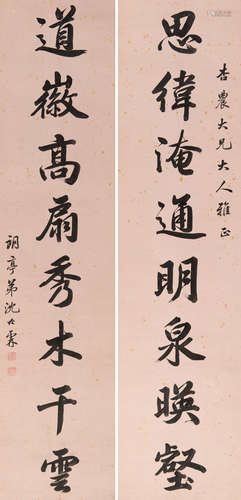 杏農大兄大人雅正
思緯淹通明泉暎壑
道徽高扇秀木干雲
詡亭弟沈大霖